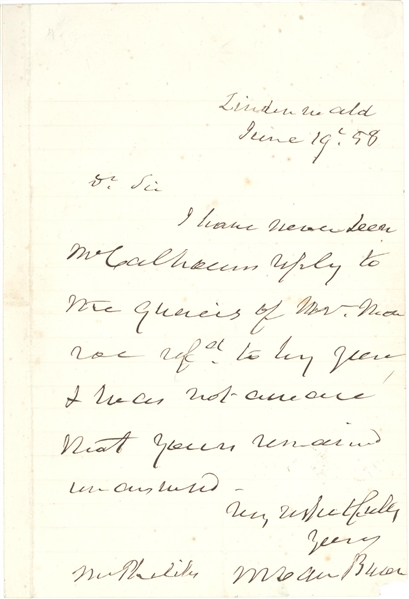 Lindenwald
June 19th. 58
Dr. Sir
I have never seen
Mr Calhouns reply to
the queries of Mr. Mon
roe refd. to by you,
& was not aware
that yours remained
unanswered.
Very respectfully
Yours
M Van Buren